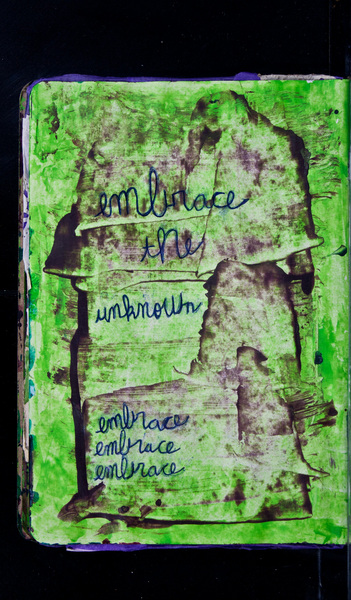 embrace
the
unknown
embrace
embrace
embrace